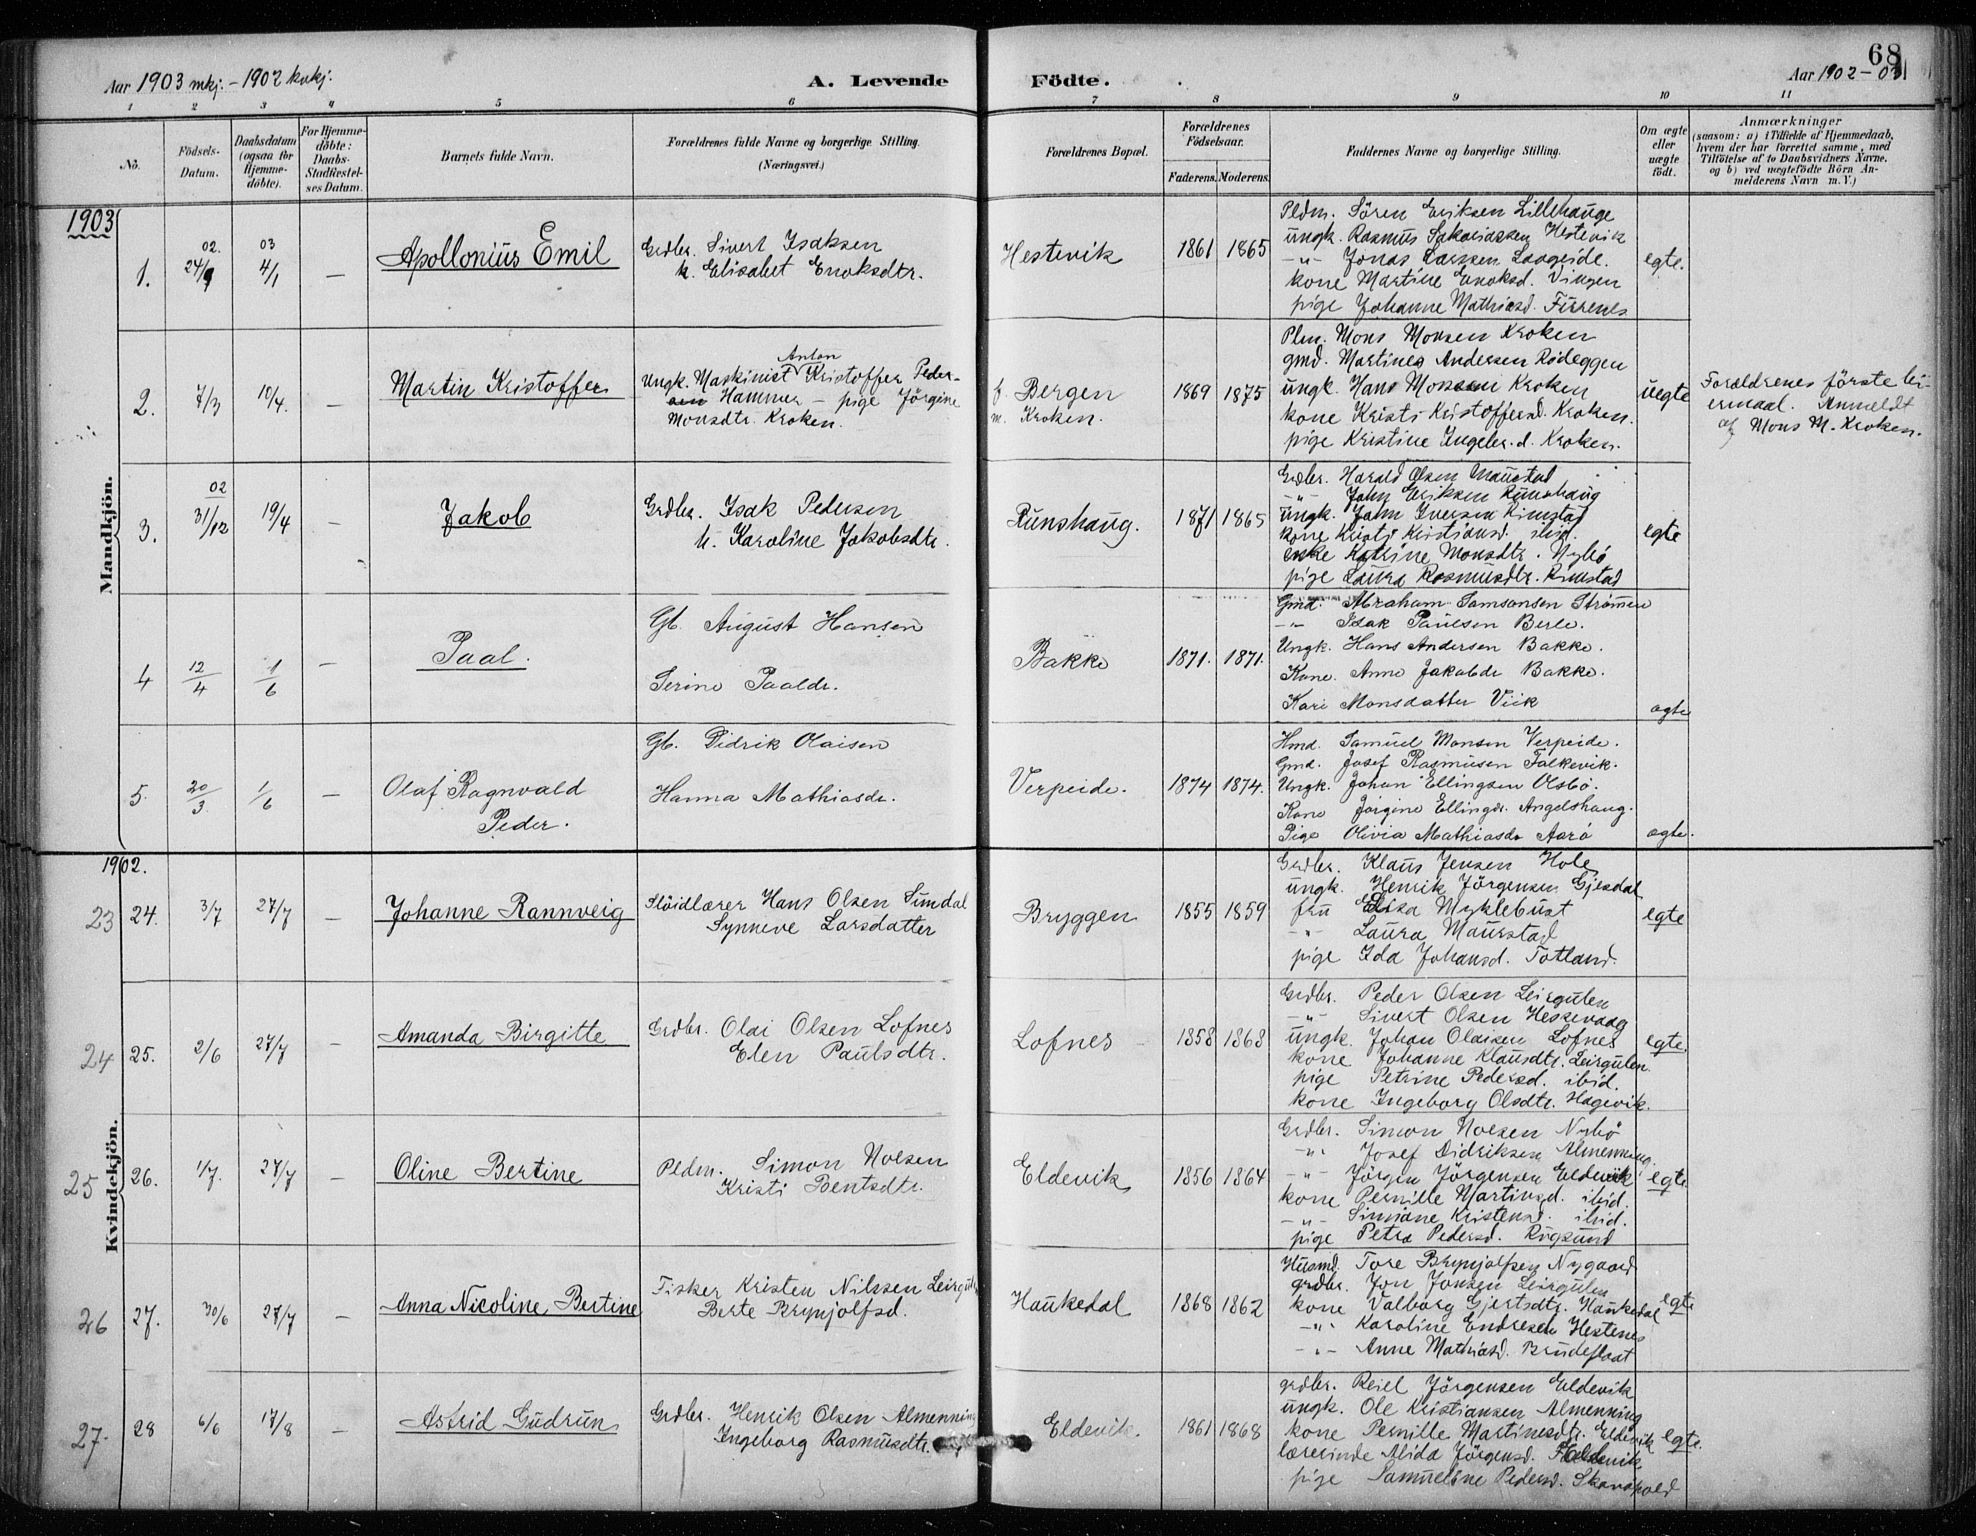 68
Aar 1903 mkj. - 1902 kvkj.
A. Levende
Födte.
Aar 1902-03
1 2 3 4 5 6 7 8 9 10 11
No.
Födsels-
Datum.
Daabsdatum
(ogsaa for
Hjemme-
döbte).
For Hjemme-
döbte:
Daabs-
Stadfæstel-
ses Datum.
Barnets fulde Navn.
Forældrenes fulde Navne og borgerlige Stilling.
(Næringsvei.)
Forældrenes Bopæl.
Forældrenes
Födselsaar.
Faderens. Moderens.
Faddernes Navne og borgerlige Stilling.
Om ægte
eller
uægte
födt.
Anmærkninger
(saasom: a) i Tilfælde af Hjemmedaab,
hvem der har forrettet samme, med
Tilföielse af to Daabsvidners Navne,
og b) ved uægtefödte Börn An-
melderens Navn m. V.)
1903
Mandkjön.
1. 02 24/9 03 4/1 — Apollonius Emil
Grdbr. Sivert Isaksen
h. Elisabet Enoksdtr.
Hestevik 1861 1865
Pldm. Sören Eriksen Lillehauge
ungk. Rasmus Sakariassen Hestevik
-"- Jonas Larssen Langeide.
kone Martine Enoksd. Vingen
pige Johanne Mathiasd. Furenes
egte.
2. 7/3 10/4. Martin Kristoffer
Anton
ungk. Maskinist Kristoffer Peder-
sen Hammer — pige Jörgine
Monsdtr. Kroken.
f. Bergen
m. Kroken.
1869 1875
Plm. Mons Monsen Kroken
gmd. Martines Andersen Rödeggen
ungk. Hans Monsen Kroken
kone Kristi Kristoffersd. Kroken.
pige Kristine Ingebr. d. Kroken.
uegte
Forældrenes förste lei-
ermaal. Anmeldt
af Mons M. Kroken.
3. 02 31/12 19/4 — Jakob
Grdbr. Isak Pedersen
h. Karoline Jakobsdtr.
Runshaug. 1871 1865
Grdbr. Harald Olsen Maurstad
-"- John Eriksen Runshaug
ungk. John Iversen Rimstad
kone Kristi Kristiansd. ibid.
enke Katrine Monsdtr. Nybö
pige Laura Rasmusdtr. Rimstad
egte
4 12/4 1/6 — Paal.
Gb. August Hansen
Serine Paaldr.
Bakke 1871. 1871.
Gmd. Abraham Samsonsen Strömmen
-"- Isak Paulsen Berle.
Ungk. Hans Andersen Bakke.
Kone. Anne Jakobdr Bakke.
Kari Monsdatter Viik
ægte
5. 20/3. 1/6 — Olaf Ragnvald
Peder.
Gb. Didrik Olaisen
Hanna Mathiasdr.
Verpeide. 1874 1874.
Hmd. Samuel Monsen Verpeide.
Gmd. Josef Rasmusen Falkevik.
Ungk. Johan Ellingsen Osbö.
Kone Jörgine Ellingdr. Angelshaug.
Pige Olivia Mathiasdr Aarö
ægte.
1902.
Kvindekjön.
23 24. 3/7 27/7 — Johanne Rannveig
Slöidlærer Hans Olsen Sundal
Synneve Larsdatter
Bryggen 1855 1859
Grdbr. Klaus Jensen Hole
ungk. Henrik Jörgensen Gjesdal
fru Elisa Myklebust
-"- Laura Maurstad
pige Ida Johansd. Totland.
egte
24 25. 2/6 27/7 — Amanda Birgitte
Grdbr. Olai Olsen Lofnes
Elen Paulsdtr.
Lofnes 1858 1863
Grdbr. Peder Olsen Leirgulen
-"- Sivert Olsen Hessevaag
ungk. Johan Olaisen Lofnes
kone Johanne Klausdtr. Leirgulen
pige Petrine Pedersd. ibid.
kone Ingeborg Olsdtr. Hagevik.
egte.
25 26. 1/7. 27/7 — Oline Bertine
Pldm. Simon Moesen
Kristi Bentsdtr.
Eldevik 1856 1864
Grdbr. Simon Moesen Nybö
-"- Josef Didriksen Almenning.
-"- Jörgen Jörgensen Eldevik
kone Pernille Martinsd. ibid.
-"- Simiane Kristensd. ibid.
pige Petra Pedersd. Rugsund
egte.
26 27. 30/6 27/7 — Anna Nicoline Bertine
Fisker Kristen Nilssen Leirgulen
Berte Brynjolfsd.
Haukedal 1868 1862
Husmd. Tore Brynjolfsen Nygaard
grdbr. Jon Jonsen Leirgulen
kone Valborg Gjertsdtr. Haukedal
-"- Karoline Endresen Hestenes
-"- Anne Mathiasd. Brudeflaat
egte
27. 28 6/6 17/8 — Astrid Gudrun
Grdbr. Henrik Olsen Almenning
Ingeborg Rasmusdtr.
Eldevik. 1861 1868
grdbr. Reiel Jörgensen Eldevik
ungk. Ole Kristiansen Almenning
kone Pernille Martinesdtr. Eldevik
lærerinde Alida Jörgensd. Eldevik
pige Samueline Pedersd. Skaves
egte.